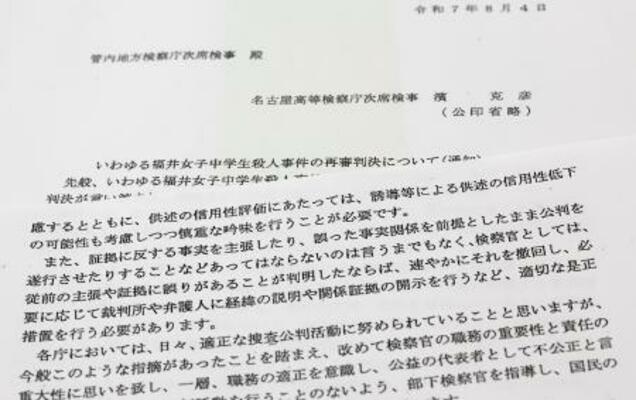 令和７年８月４日
管内地方検察庁次席検事　殿
名古屋高等検察庁次席検事　濱　克彦
（公印省略）
いわゆる福井女子中学生殺人事件の再審判決について（通知）
先般、いわゆる福井女子中学生殺人
判決が言い
慮するとともに、供述の信用性評価にあたっては、誘導等による供述の信用性低下
の可能性も考慮しつつ慎重な吟味を行うことが必要です。
また、証拠に反する事実を主張したり、誤った事実関係を前提としたまま公判を
遂行させたりすることなどあってはならないのは言うまでもなく、検察官としては、
従前の主張や証拠に誤りがあることが判明したならば、速やかにそれを撤回し、必
要に応じて裁判所や弁護人に経緯の説明や関係証拠の開示を行うなど、適切な是正
措置を行う必要があります。
各庁においては、日々、適正な捜査公判活動に努められていることと思いますが、
今般このような指摘があったことを踏まえ、改めて検察官の職務の重要性と責任の
重大性に思いを致し、一層、職務の適正を意識し、公益の代表者として不公正と言
行うことのないよう、部下検察官を指導し、国民の